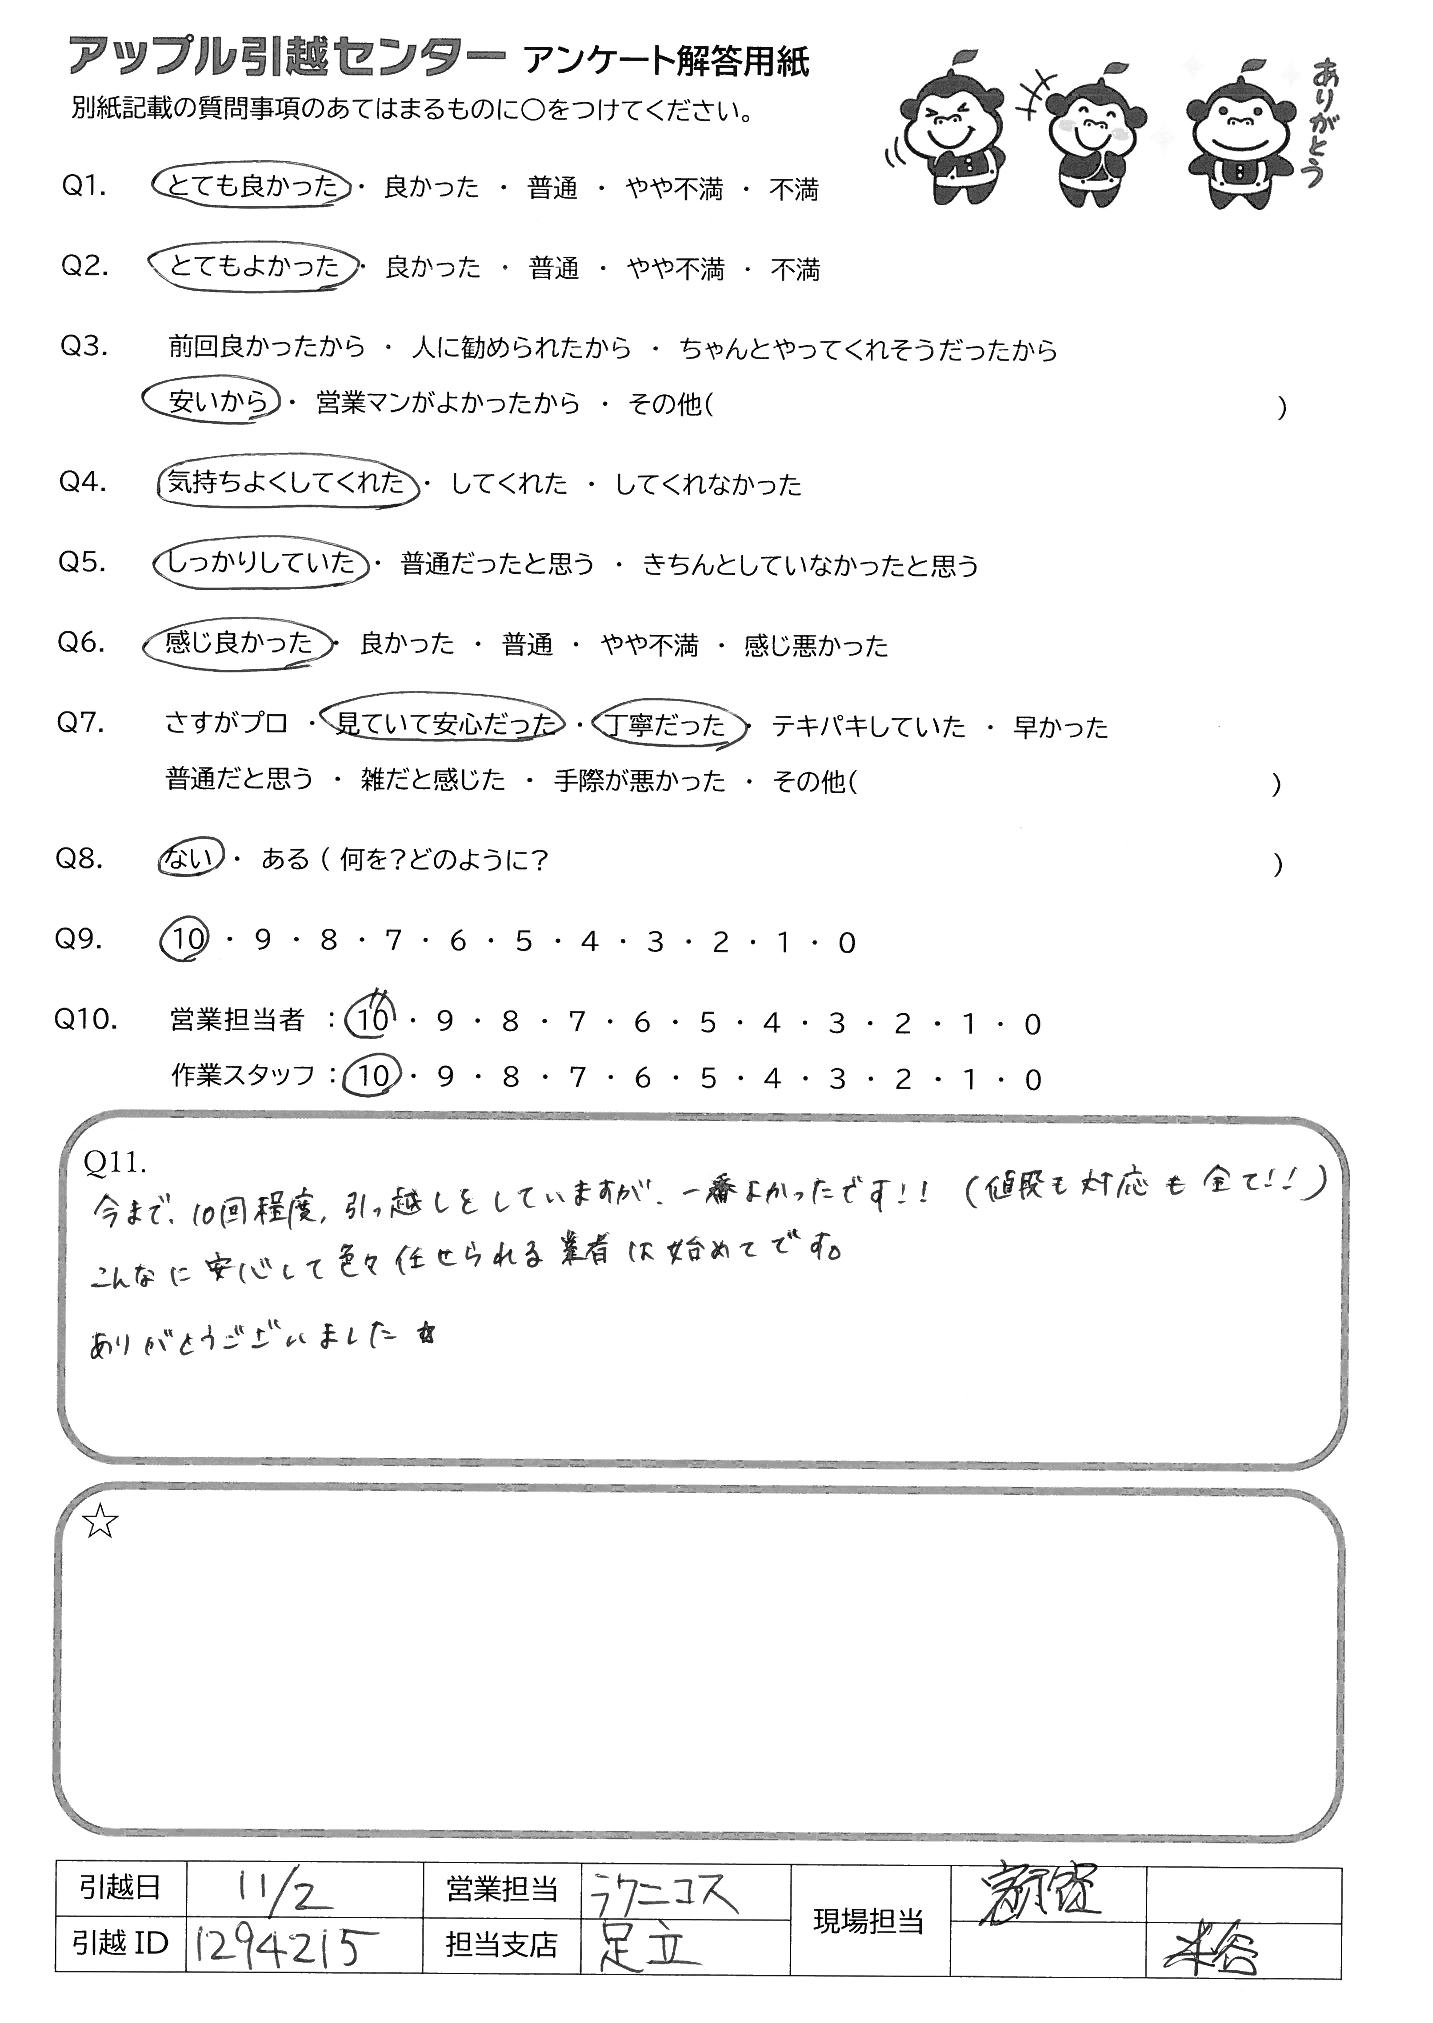 アップル引越センター アンケート解答用紙
別紙記載の質問事項のあてはまるものに〇をつけてください。
ありがとう
Q1. とても良かった ・ 良かった ・ 普通 ・ やや不満 ・ 不満
Q2. とてもよかった ・ 良かった ・ 普通 ・ やや不満 ・ 不満
Q3. 前回良かったから ・ 人に勧められたから ・ ちゃんとやってくれそうだったから
安いから ・ 営業マンがよかったから ・ その他( )
Q4. 気持ちよくしてくれた ・ してくれた ・ してくれなかった
Q5. しっかりしていた ・ 普通だったと思う ・ きちんとしていなかったと思う
Q6. 感じ良かった ・ 良かった ・ 普通 ・ やや不満 ・ 感じ悪かった
Q7. さすがプロ ・ 見ていて安心だった ・ 丁寧だった ・ テキパキしていた ・ 早かった
普通だと思う ・ 雑だと感じた ・ 手際が悪かった ・ その他( )
Q8. ない ・ ある ( 何を?どのように? )
Q9. 10 ・ 9 ・ 8 ・ 7 ・ 6 ・ 5 ・ 4 ・ 3 ・ 2 ・ 1 ・ 0
Q10. 営業担当者 : 10 ・ 9 ・ 8 ・ 7 ・ 6 ・ 5 ・ 4 ・ 3 ・ 2 ・ 1 ・ 0
作業スタッフ : 10 ・ 9 ・ 8 ・ 7 ・ 6 ・ 5 ・ 4 ・ 3 ・ 2 ・ 1 ・ 0
Q11.
今まで、10回程度、引っ越しをしていますが、一番よかったです!! (値段も対応も全て!!)
こんなに安心して色々任せられる業者は始めてです。
ありがとうございました☆
☆
引越日 11/2 営業担当 ラクニコス 現場担当
引越ID 1294215 担当支店 足立 米谷